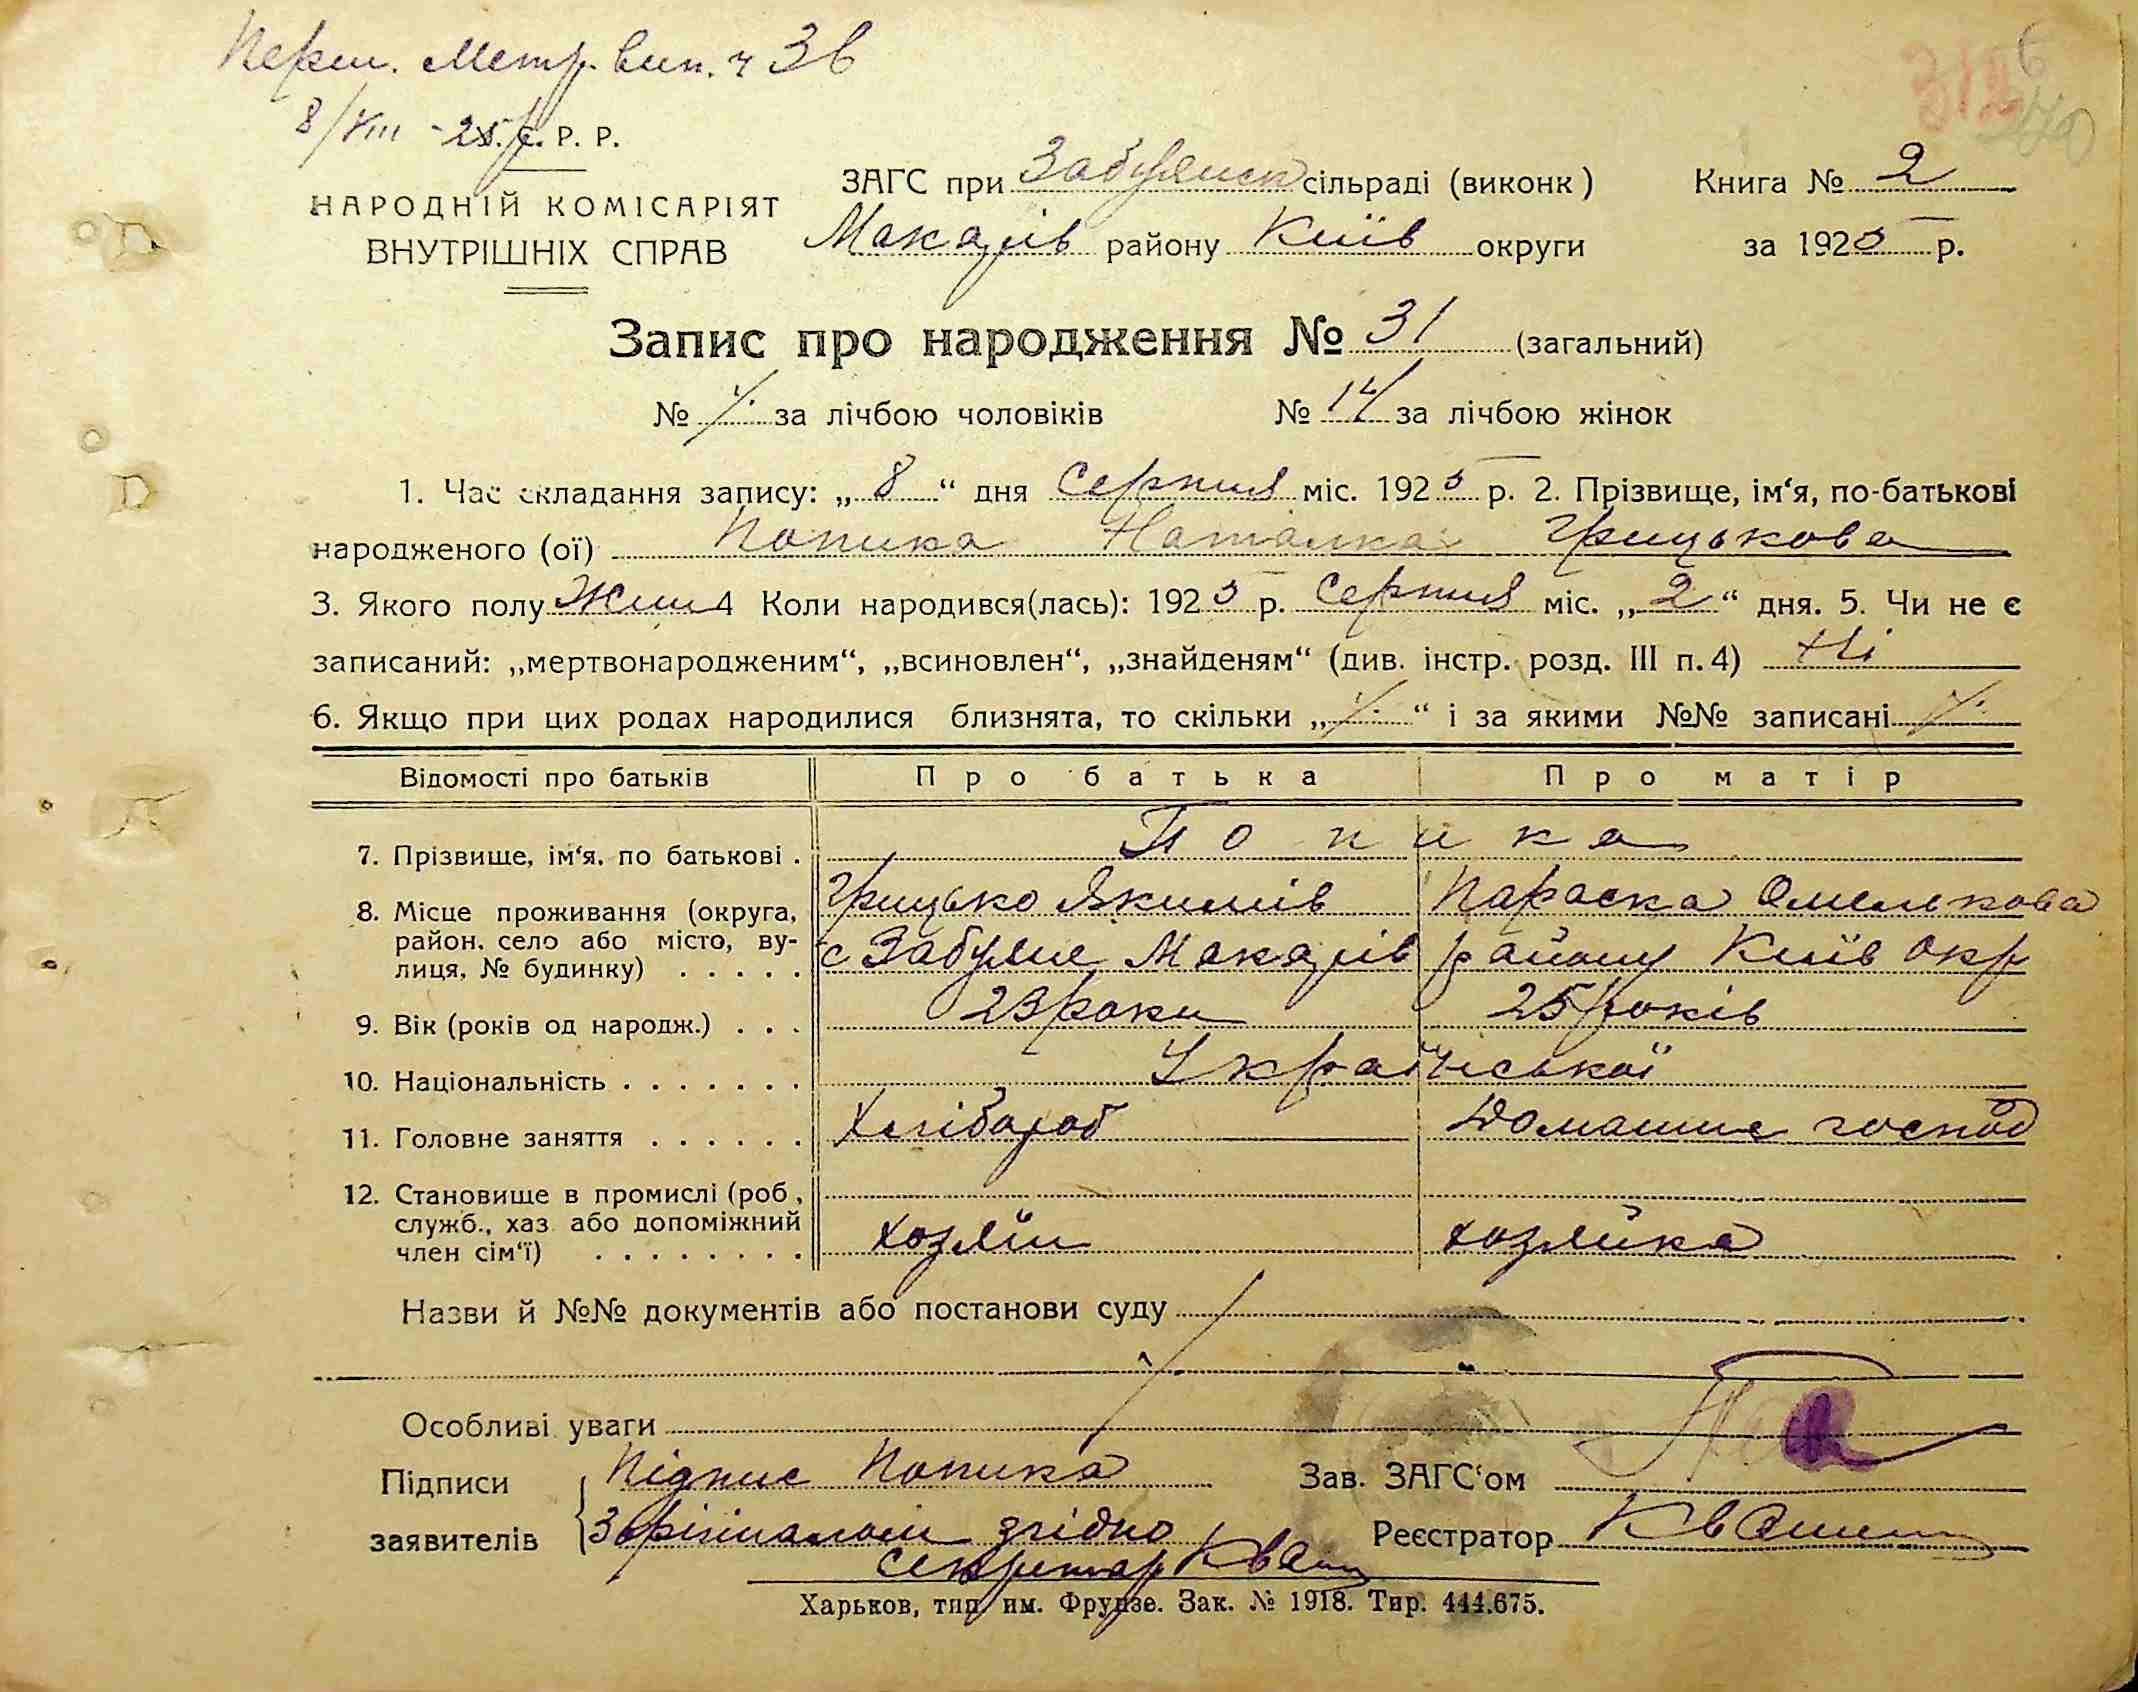 Перш. Метр. вип. ч 36
8/VIII - 25 р.
С. Р. Р.
НАРОДНІЙ КОМІСАРІЯТ
ВНУТРІШНІХ СПРАВ
ЗАГС при Забуянск сільраді (виконк)
Макарів району Київ округи
Книга № 2
за 1925 р.
Запис про народження № 31 (загальний)
№ ⁒ за лічбою чоловіків № 14 за лічбою жінок
1. Час складання запису: „8“ дня Серпня міс. 1925 р. 2. Прізвище, ім‘я, по-батькові
народженого (ої) Попика Наталка Грицькова
3. Якого полу Жін 4 Коли народився(лась): 1925 р. Серпня міс. „2“ дня. 5. Чи не є
записаний: „мертвонародженим“, „всиновлен“, „знайденям“ (див. інстр. розд. III п. 4) Ні
6. Якщо при цих родах народилися близнята, то скільки „⁒“ і за якими №№ записані ⁒
Відомості про батьків Про батька Про матір
7. Прізвище, ім‘я, по батькові . Попика
8. Місце проживання (округа, Грицько Якимів Параска Омелькова
район, село або місто, ву-
лиця, № будинку) . . . . . с Забуяне Макарів району Київ окр
9. Вік (років од народж.) . . . 23 роки 25 років
10. Національність . . . . . . . Української
11. Головне заняття . . . . . . Хлібороб Домашнє господ
12. Становище в промислі (роб,
служб., хаз. або допоміжний
член сім‘ї) . . . . . . . . хозяїн хозяйка
Назви й №№ документів або постанови суду
Особливі уваги
Підписи Підпис Попика Зав. ЗАГС‘ом
заявителів З орігіналом згідно Реєстратор Кваш
секретар Кваш
Харьков, тип. им. Фрунзе. Зак. № 1918. Тир. 444.675.